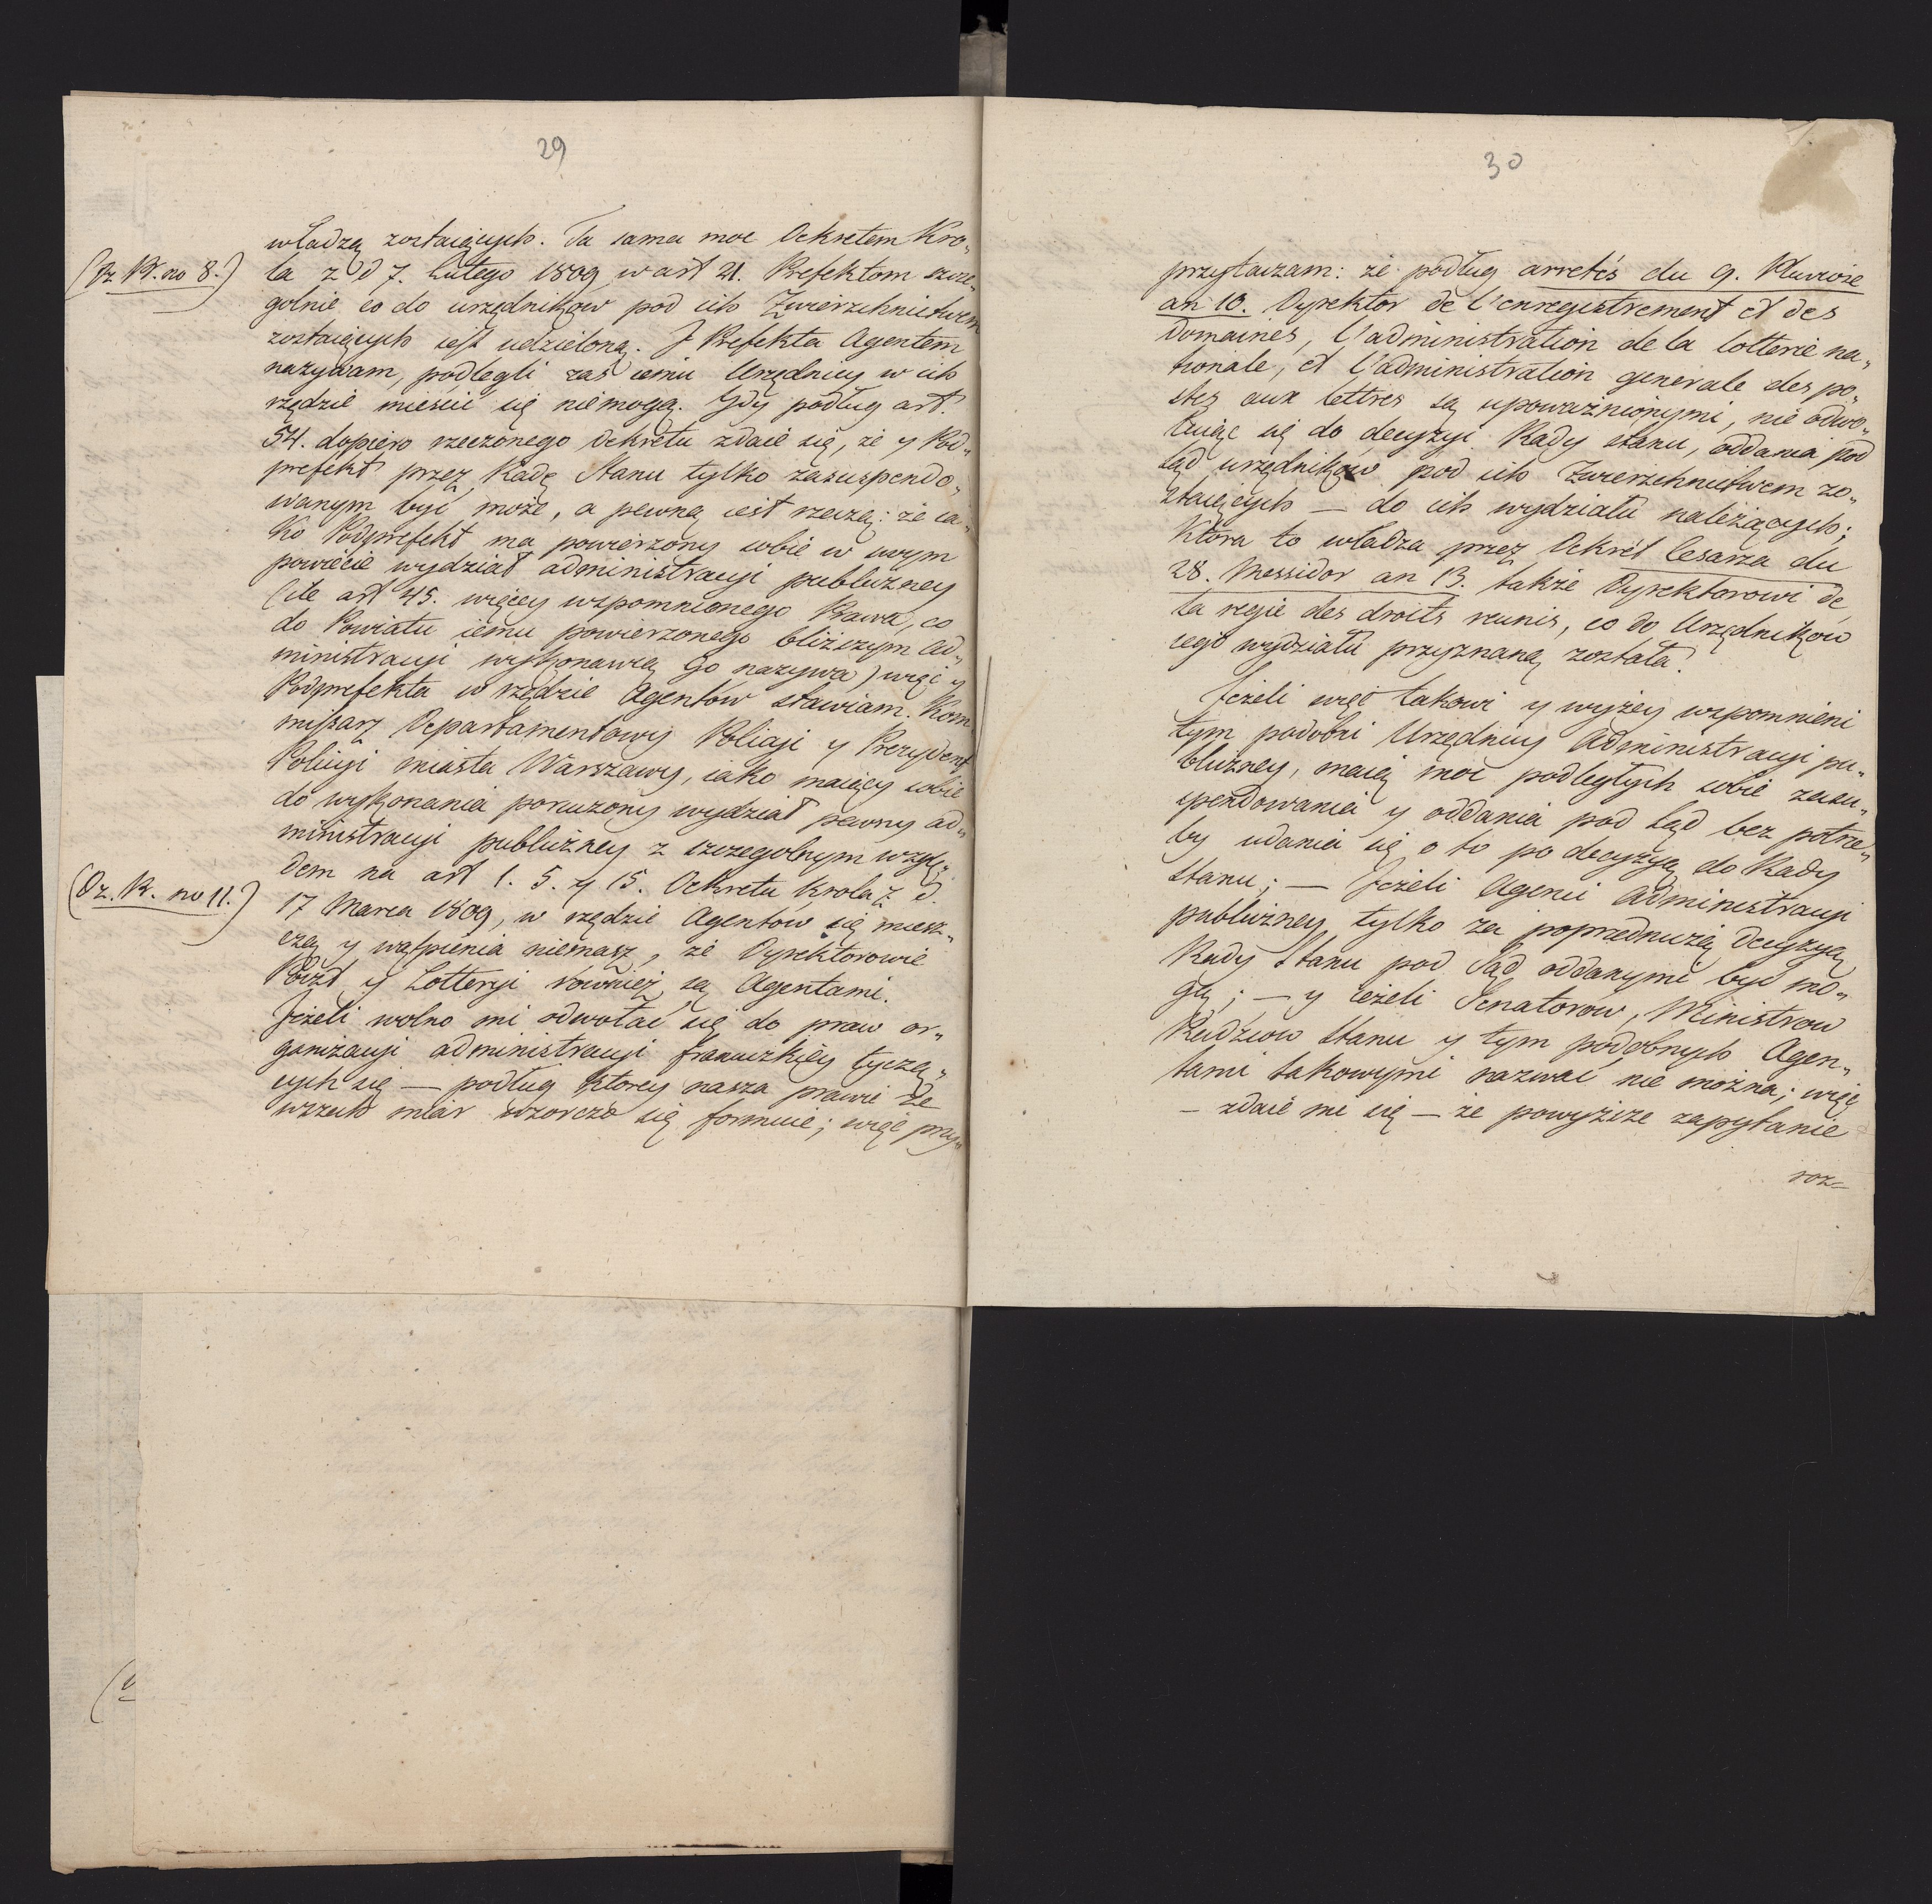 29
władzą zostaiących. Ta sama moc Dekretem Kro„
(Dz. Pr. no 8.)
la z d 7. Lutego 1809 w art 21. Prefektom szcze„
golnie co do urzędników pod ich Zwierzchnictwem
zostaiących iest udzieloną. I Prefekta Agentem
nazywam, podlegli zaś iemu Urzędnicy w ich
rzędzie mieścić się niemogą. Gdy podług art.
54. dopiero rzeczonego Dekretu zdaie się, że y Pod„
prefekt przez Radę Stanu tylko zasuspendo„
wanym być może, a pewną iest rzeczą: że ia„
ko Podprefekt ma powierzony sobie w swym
powiecie wydział administracyi publiczney
(ile art 45. więcey wspomnionego Prawa, co
do Powiatu iemu powierzonego bliższym ad„
ministracyi wykonawcą go nazywa) więc y
Podprefekta w rzędzie Agentów stawiam. Kom„
missarz Departamentowy Policyi y Prezydent
Policyi miasta Warszawy, iako maiący sobie
do wykonania poruczony wydział pewny ad„
ministracyi publiczney z szczegolnym wzglę„
dem na art 1. 5. y 15. Dekretu Krola z d.
(Dz. Pr. no 11.)
17 Marca 1809, w rzędzie Agentow się miesz„
czą y wątpienia niemasz, że Dyrektorowie
Poczt y Lotteryi również są Agentami.
Jeżeli wolno mi odwołać się do praw or„
ganizacyi administracyi francuzkiey tyczą„
cych się — podług ktorey nasza prawie ze
wszech miar wzorcze się formuie; więc przy„
30
przytaczam: że podług arretés du 9. Pluviose
an 10. Dyrektor de l'enregistrement et des
domaines, l'administration de la lotterie na„
tionale, et l'administration generale des po„
stes aux lettres są upoważnionymi, nie odwo„
łuiąc się do decyzyi Rady stanu, oddania pod
sąd urzędników pod ich Zwierzchnictwem zo„
staiących — do ich wydziału należących;
Ktora to władza przez Dekret Cesarza du
28. Messidor an 13. także Dyrektorowi de
la regie des droits reunis, co do Urzędników
iego wydziału przyznaną została.
Jeżeli więc takowi y wyżey wspomnieni
tym podobni Urzędnicy Administracyi pu„
bliczney, maią moc podległych sobie zasu„
spendowania y oddania pod Sąd bez potrze„
by udania się o to po decyzyą do Rady
Stanu; — Jeżeli Agenci Administracyi
publiczney tylko za poprzedniczą Decyzyą
Rady Stanu pod Sąd oddanymi być mo„
gą; — y ieżeli Senatorow, Ministrow
Radzcow Stanu y tym podobnych Agen„
tami takowymi nazwać nie można; więc
— zdaie mi się — że powyższe zapytanie
roz=